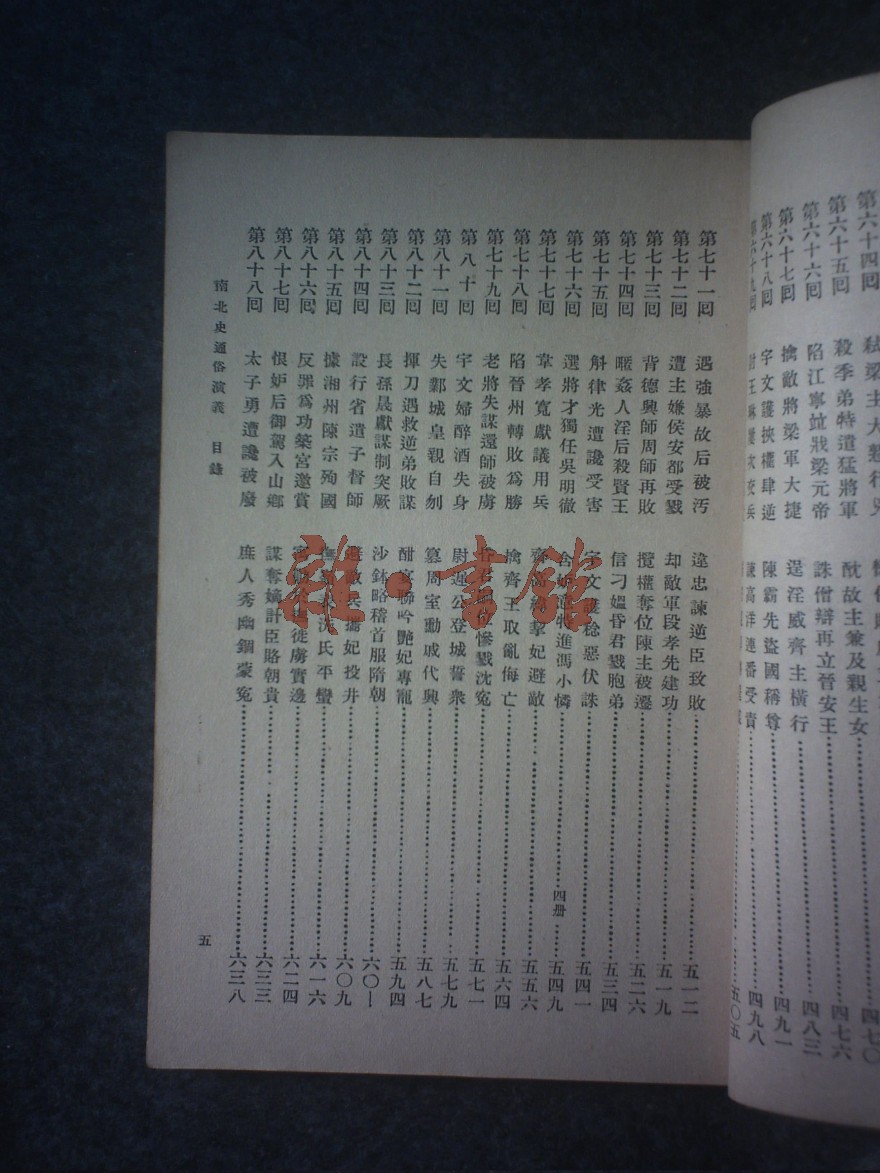 第六十四回 弑梁主大憝行 四七〇
第六十五回 殺季弟特遣猛將軍 酖故主兼及親生女 四七六
第六十六回 陷江寧竝戕梁元帝 誅僧辯再立晉安王 四八三
第六十七回 擒敵將梁軍大捷 逞淫威齊主橫行 四九一
第六十八回 宇文護挾權肆逆 陳霸先盜國稱尊 四九八
第六十九回 討王琳屢次交兵 諫高洋連番受責 五〇五
第七十一回 遇強暴故后被汚 違忠諫逆臣致敗 五一二
第七十二回 遭主嫌侯安都受戮 却敵軍段孝先建功 五一九
第七十三回 背德興師周師再敗 攬權奪位陳主被遷 五二六
第七十四回 暱姦人淫后殺賢王 信刁媼昏君戮胞弟 五三四
第七十五回 斛律光遭讒受害 宇文護稔惡伏誅 五四一
第七十六回 選將才獨任吳明徹 特進馮小憐 四册 五四九
第七十七回 韋孝寬獻議用兵 齊高緯挈妃避敵 五五六
第七十八回 陷晉州轉敗爲勝 擒齊王取亂侮亡 五六四
第七十九回 老將失謀還師被虜 位慘戮沈冤 五七一
第八十回 宇文婦醉酒失身 尉遲公登城誓衆 五七九
第八十一回 失鄴城皇親自刎 篡周室勳戚代興 五八七
第八十二回 揮刀遇救逆弟敗謀 酣宴聯吟艷妃專寵 五九四
第八十三回 長孫晟獻謀制突厥 沙鉢略稽首服隋朝 六〇一
第八十四回 設行省遣子督師 避敵兵攜妃投井 六〇九
第八十五回 據湘州陳宗殉國 撫嶺表洗氏平蠻 六一六
第八十六回 反罪爲功築宮邀賞 徙虜實邊 六二四
第八十七回 恨妒后御駕入山鄉 謀奪嫡計臣賂朝貴 六三三
第八十八回 太子勇遭讒被廢 庶人秀幽錮蒙寃 六三八
南北史通俗演義 目錄
五
雜·書館